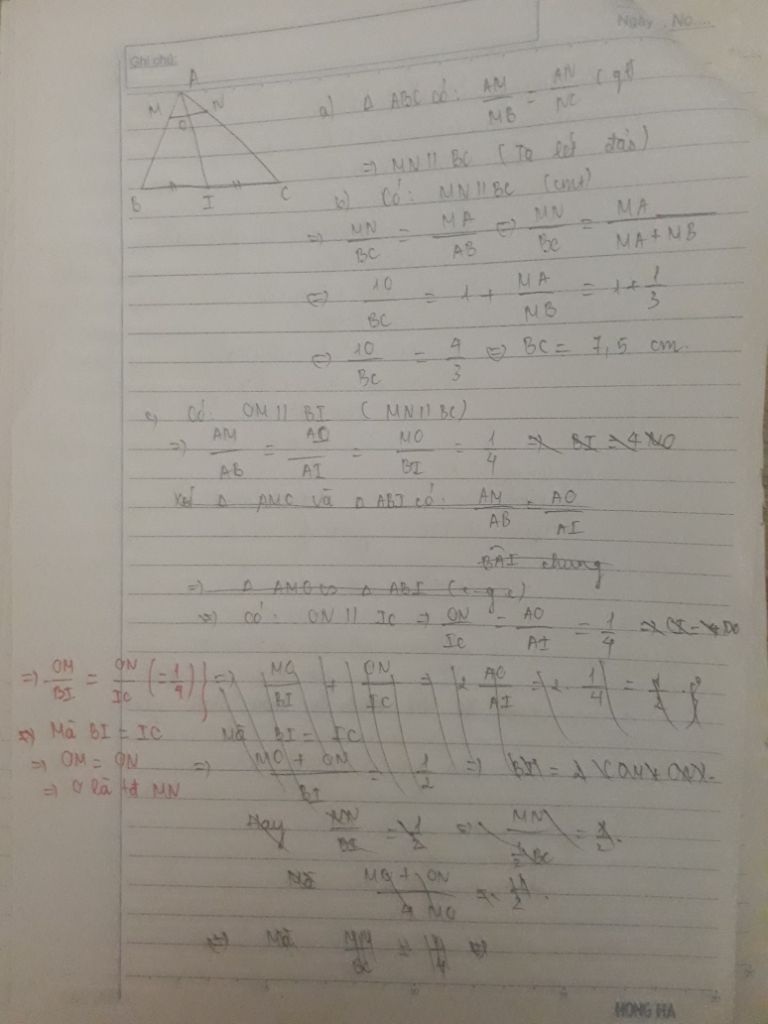 Ngày No....
Ghi chú:
A
M N
O
B I C
a) Δ ABC có: AM/MB = AN/NC (gt)
=> MN // BC (Ta lét đảo)
b) Có: MN // BC (cmt)
=> MN/BC = MA/AB <=> MN/BC = MA/(MA+MB)
<=> 10/BC = 1 + MA/MB = 1 + 1/3
<=> 10/BC = 4/3 <=> BC = 7,5 cm.
c) Có: OM // BI (MN // BC)
=> AM/AB = AO/AI = MO/BI = 1/4 => BI = 4 MO
Xét Δ AMC và Δ ABI có: AM/AB = AO/AI
BAI chung
=> Δ AMO ∽ Δ ABI (c-g-c)
=> có: ON // IC => ON/IC = AO/AI = 1/4
=> OM/BI = ON/IC (= 1/4) } => MO/BI + ON/IC = 2 AO/AI = 2 . 1/4 = 1/2
=> Mà BI = IC Mà BI = IC
=> OM = ON => (MO + ON)/BI = 1/2 =>
=> O là tđ MN
Hay MN/BI = 1/2 => MN/(1/2 BC) = 1/2.
(MO + ON)/(4 MO) = 1/2.
=> Mà MN/BC = 1/4
HONG HA